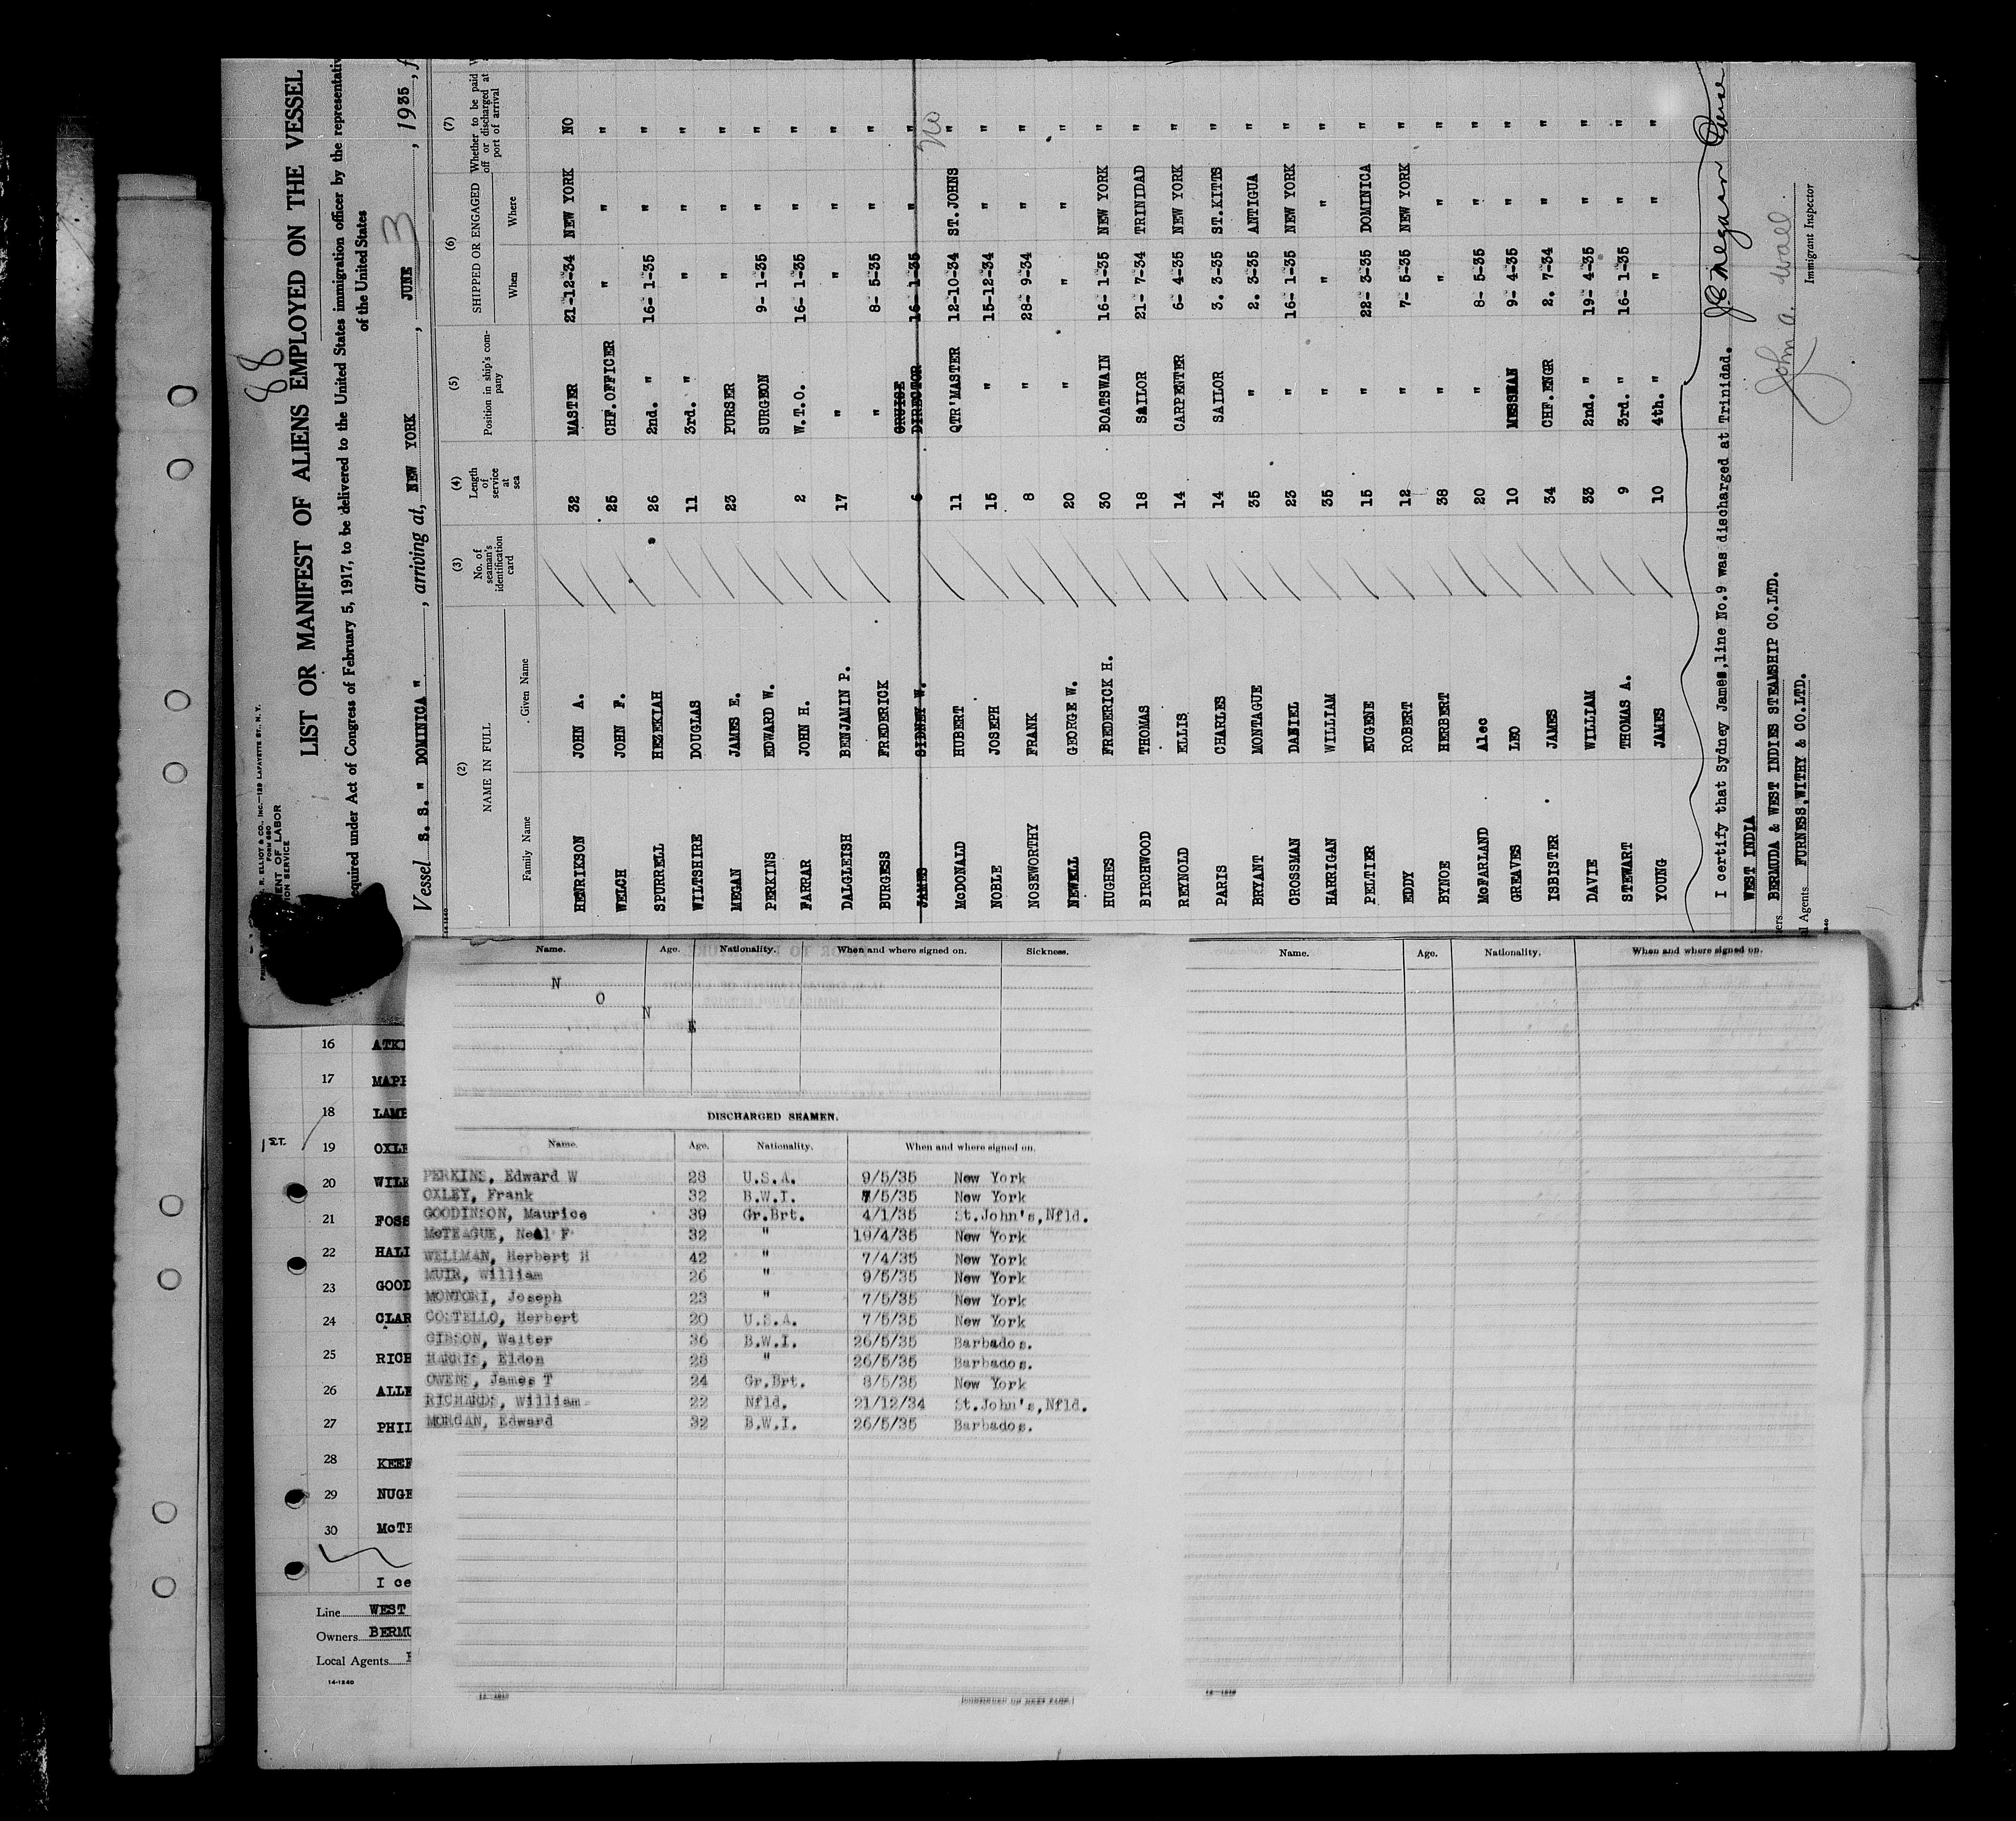 88
R. ELLIOT & CO., INC.—129 LAFAYETTE ST., N. Y.
FORM 680
LIST OR MANIFEST OF ALIENS EMPLOYED ON THE VESSEL
equired under Act of Congress of February 5, 1917, to be delivered to the United States immigration officer by the representativ
of the United States
Vessel S. S. " DOMINICA " , arriving at, NEW YORK , JUNE 3 , 1935 , f
(2) (3) (4) (5) (6) (7)
NAME IN FULL No. of seaman's identification card Length of service at sea Position in ship's company SHIPPED OR ENGAGED Whether to be paid off or discharged at port of arrival
Family Name Given Name When Where
HENRIKSON JOHN A. 32 MASTER 21-12-34 NEW YORK NO
WELCH JOHN F. 25 CHF.OFFICER " " "
SPURRELL HEZEKIAH 26 2nd. " 16- 1-35 " "
WILTSHIRE DOUGLAS 11 3rd. " " " "
MEGAN JAMES E. 23 PURSER " " "
PERKINS EDWARD W. SURGEON 9- 1-35 " "
FARRAR JOHN H. 2 W.T.O. 16- 1-35 " "
DALGLEISH BENJAMIN P. 17 " " " "
BURGESS FREDERICK " 8- 5-35 " "
JAMES SIDNEY W. 6 CRUISE DIRECTOR 16- 1-35 " " No
McDONALD HUBERT 11 QTR'MASTER 12-10-34 ST.JOHNS "
NOBLE JOSEPH 15 " 15-12-34 " "
NOSEWORTHY FRANK 8 " 28- 9-34 " "
NEWELL GEORGE W. 20 " " " "
HUGHES FREDERICK H. 30 BOATSWAIN 16- 1-35 NEW YORK "
BIRCHWOOD THOMAS 18 SAILOR 21- 7-34 TRINIDAD "
REYNOLD ELLIS 14 CARPENTER 6- 4-35 NEW YORK "
PARIS CHARLES 14 SAILOR 3. 3-35 ST.KITTS "
BRYANT MONTAGUE 35 " 2. 3-35 ANTIGUA "
CROSSMAN DANIEL 23 " 16- 1-35 NEW YORK "
HARRIGAN WILLIAM 35 " " " "
PELTIER EUGENE 15 " 22- 3-35 DOMINICA "
EDDY ROBERT 12 " 7- 5-35 NEW YORK "
BYNOE HERBERT 38 " " " "
McFARLAND Alec 20 " 8- 5-35 " "
GREAVES LEO 10 MESSMAN 9- 4-35 " "
ISBISTER JAMES 34 CHF.ENGR 2. 7-34 " "
DAVIE WILLIAM 33 2nd. " 19- 4-35 " "
STEWART THOMAS A. 9 3rd. " 16- 1-35 " "
YOUNG JAMES 10 4th. " " " "
I certify that Sydney James,line No.9 was discharged at Trinidad.
WEST INDIA
BERMUDA & WEST INDIES STEAMSHIP CO.LTD.
Agents FURNESS,WITHY & CO.LTD.
John A. Wall
Immigrant Inspector
Name. Age. Nationality. When and where signed on. Sickness.
N
O
N
E
DISCHARGED SEAMEN.
Name. Age. Nationality. When and where signed on.
PERKINS, Edward W 28 U.S.A. 9/5/35 New York
OXLEY, Frank 32 B.W.I. 7/5/35 New York
GOODINSON, Maurice 39 Gr.Brt. 4/1/35 St.John's,Nfld.
McTEAGUE, Neal F 32 " 19/4/35 New York
WELLMAN, Herbert H 42 " 7/4/35 New York
MUIR, William 26 " 9/5/35 New York
MONTORI, Joseph 23 " 7/5/35 New York
COSTELLO, Herbert 20 U.S.A. 7/5/35 New York
GIBSON, Walter 36 B.W.I. 26/5/35 Barbados.
HARRIS, Eldon 28 " 26/5/35 Barbados.
OWENS, James T 24 Gr.Brt. 8/5/35 New York
RICHARDS, William 22 Nfld. 21/12/34 St.John's,Nfld.
MORGAN, Edward 32 B.W.I. 26/5/35 Barbados.
Name. Age. Nationality. When and where signed on.
16 ATKI
17 MAPE
18 LAMB
19 OXLE
20 WILK
21 FOSS
22 HALI
23 GOOD
24 CLAR
25 RICH
26 ALLE
27 PHIL
28 KEEF
29 NUGE
30 McTE
I ce
Line WEST
Owners BERMU
Local Agents
14-1240